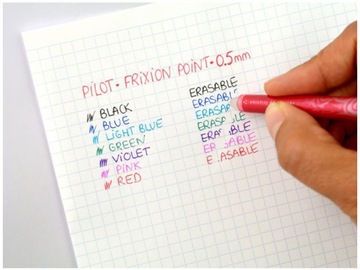 PILOT - FRIXION POINT - 0.5mm
BLACK
BLUE
LIGHT BLUE
GREEN
VIOLET
PINK
RED
ERASABLE
ERASABL
ERASAB
ERASABLE
ERASABLE
ERASABLE
ERASABLE